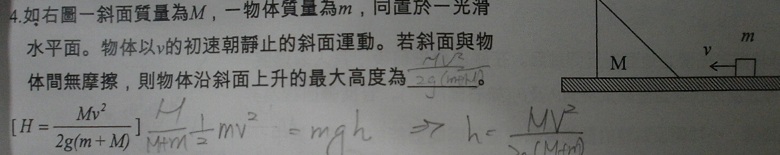 4.如右圖一斜面質量為M，一物体質量為m，同置於一光滑
水平面。物体以v的初速朝靜止的斜面運動。若斜面與物
体間無摩擦，則物体沿斜面上升的最大高度為 MV²/2g(m+M) 。
[H = Mv²/2g(m + M)] M/M+m 1/2 mv² = mgh ⇒ h = MV²/2g(M+m)
M
v
m